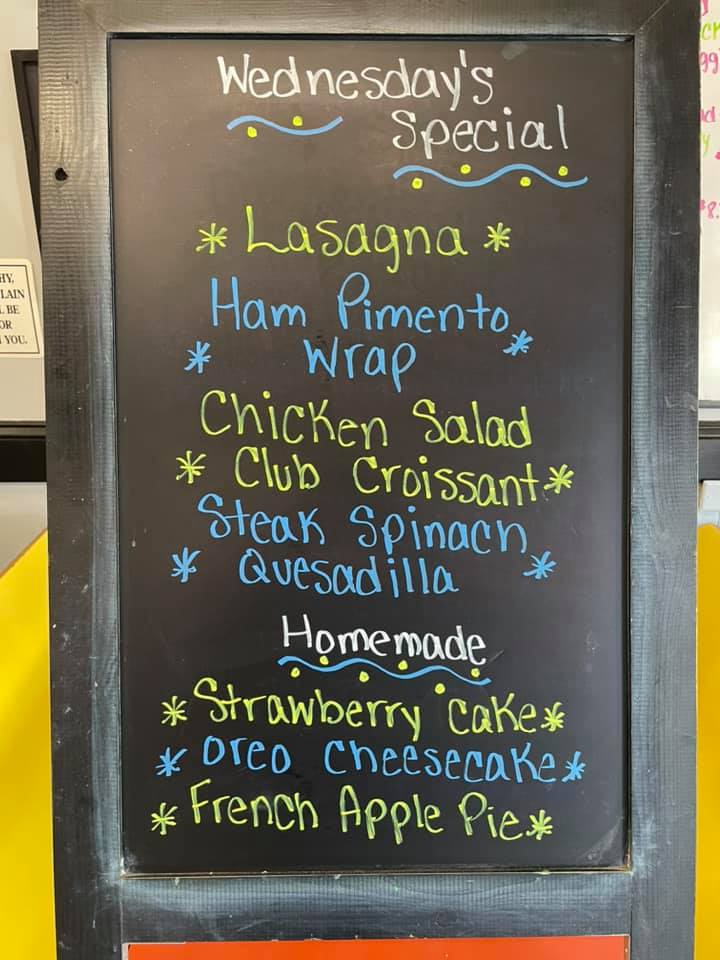 Wednesday's
Special
* Lasagna *
Ham Pimento
* Wrap *
Chicken Salad
* Club Croissant *
Steak Spinach
* Quesadilla *
Homemade
* Strawberry Cake *
* Oreo Cheesecake *
* French Apple Pie *
HY,
LAIN
L BE
OR
YOU.